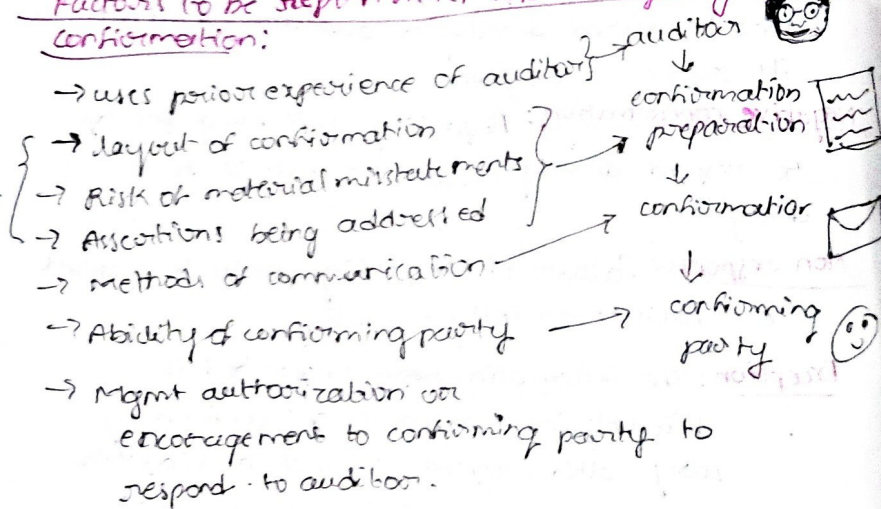 Factors to be
confirmation:
→ uses prior experience of auditors } → auditor
↓
→ layout of confirmation
→ Risk of material misstatements
→ Assertions being addressed
confirmation
preparation
↓
→ Methods of communication
confirmation
↓
→ Ability of confirming party →
confirming
party
→ Mgmt authorization or
encoragement to confirming party to
respond to auditor.